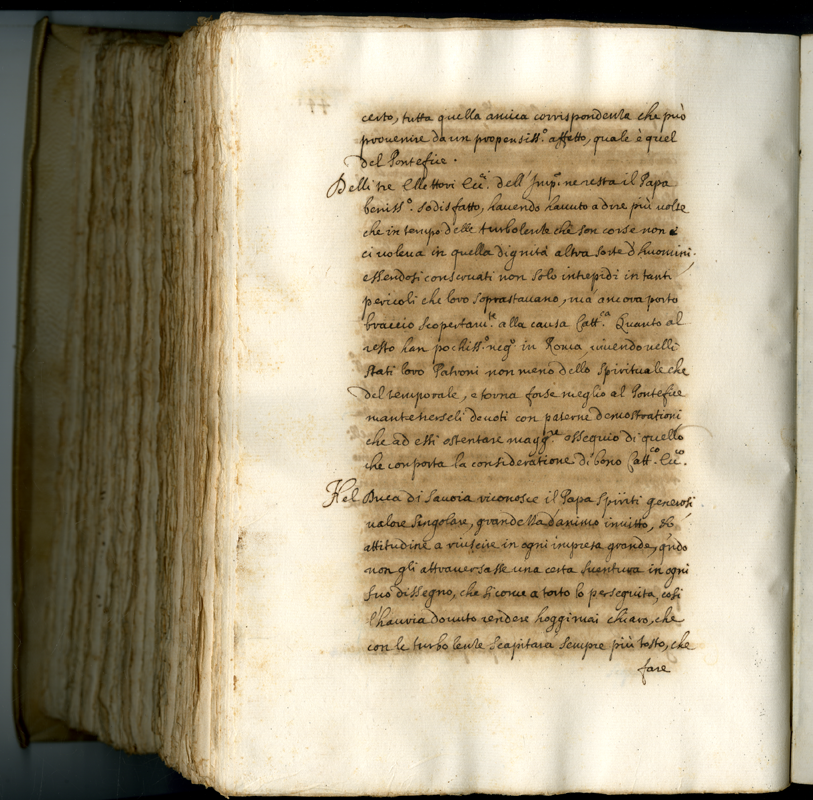 certo, tutta quella amica corrispondenza che può
provenire da un propensiss.º affetto, quale è quel
del Pontefice.
Delli tre Elettori Ecc.ci dell'Imp.º ne resta il Papa
beniss.º sodisfatto, havendo havuto a dire più volte
che in tempo delle turbolenze che son corse non
ci voleva in quella dignità altra sorte d'huomini,
essendosi conservati non solo intrepidi in tanti
pericoli che loro soprastavano, ma ancora porto
braccio scopertam.te alla causa Catt.ca Quanto al
resto han pochiss.º neg.º in Roma, vivendo nelli
stati loro Patroni non meno dello spirituale che
del temporale, e torna forse meglio al Pontefice
mantenerseli devoti con paterne demostrationi
che ad essi ostentare magg.re ossequio di quello
che comporta la consideratione di bono Catt.co Ecc.co.
Nel Duca di Savoia riconosce il Papa spiriti generosi
valore singolare, grandezza d'animo invitto, et
attitudine a riuscire in ogni impresa grande, qndo
non gli attraversasse una certa sventura in ogni
suo dissegno, che si come a torto lo perseguita, così
l'havria dovuto rendere hoggimai chiaro, che
con le turbolenze scapitarà sempre più tosto, che
fare